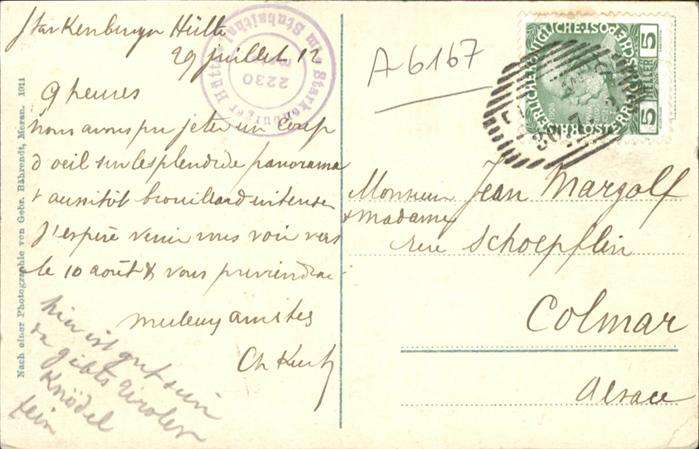 Starkenburger Hütte
29 juillet 12
9 heures
Nous avons pu jeter un coup
d'oeil sur le splendide panorama
& aussitôt brouillard intense
J'espère venir vous voir vers
le 10 août & vous préviendrai
meilleurs amitiés
Ch Kurtz
hier ist gut sein
da gibts Tiroler
Knödel
fein
Nach einer Photographie von Gebr. Bährendt, Meran. 1911
Starkenburger Hütte
im Stubaithale
2230
A 6167
5 HELLER 5
Monsieur Jean Margolf
& Madame
rue Schoepflin
Colmar
Alsace